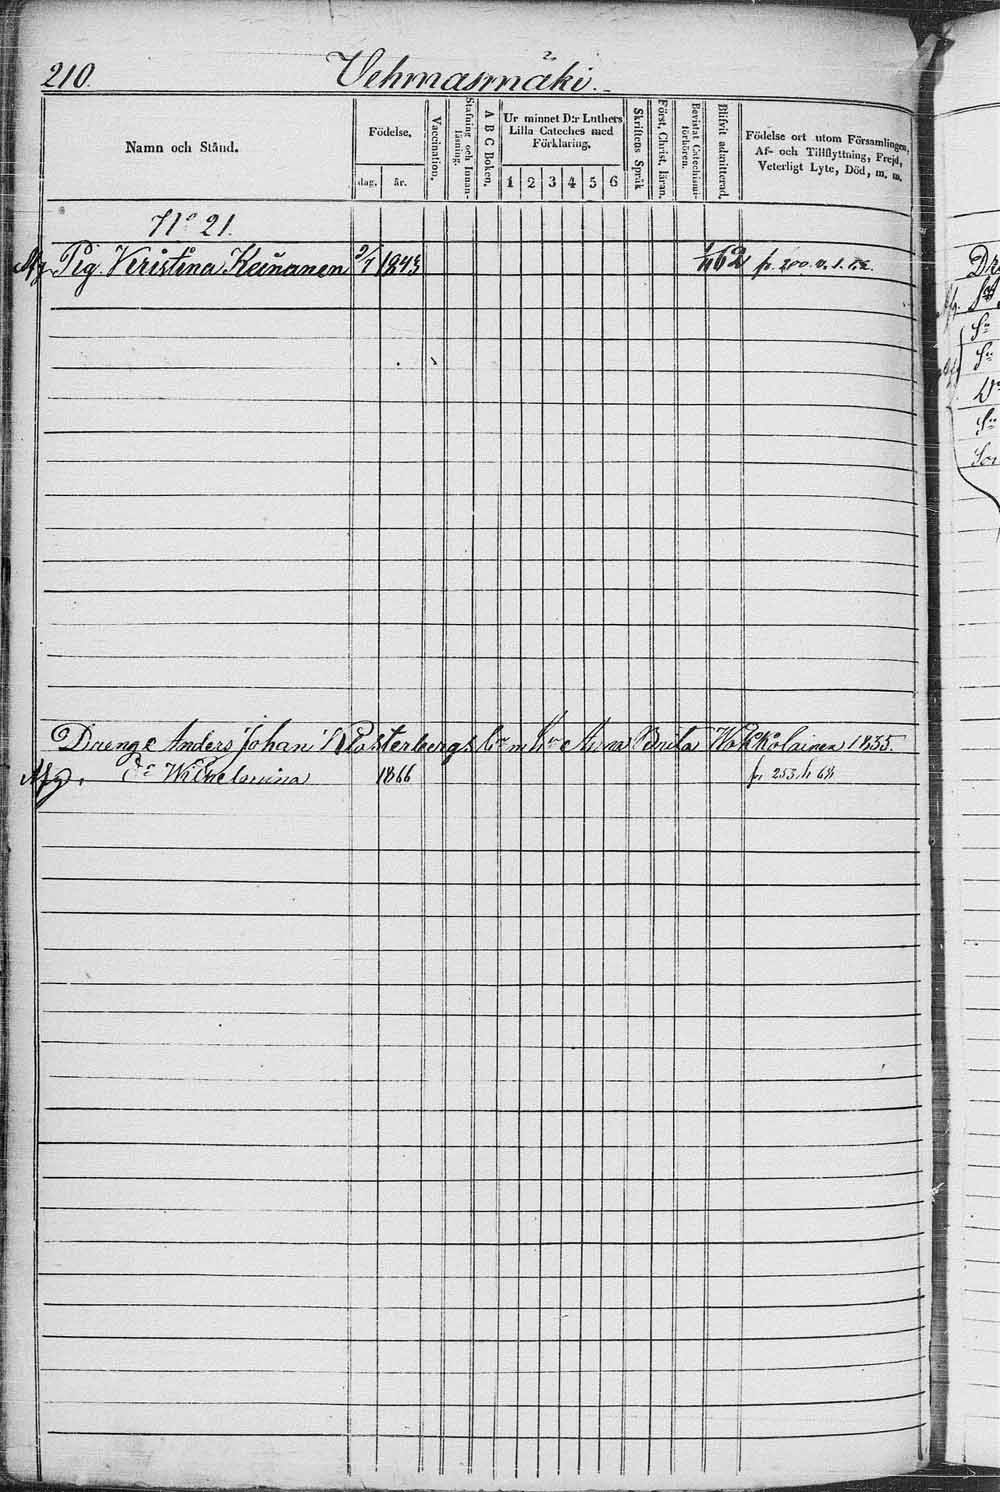 210.
Vehmasmäki.
Namn och Stånd.
Födelse,
dag.
år.
Vaccination,
Stafning och Innan-läsning.
A B C Boken.
Ur minnet D:r Luthers
Lilla Cateches med
Förklaring,
1 2 3 4 5 6
Skriftens Språk
Först. Christ. läran.
Bevistat Catechismi-förhören.
Blifvit admitterad.
Födelse ort utom Församlingen,
Af- och Tillflyttning, Frejd,
Veterligt Lyte, Död, m. m.
No 21.
Pig. Kristina Keinanen 1843 62 p. 200.
Drenge Anders Johan Posterbergs Anna Brita 1835.
Wilhelmina 1866 p. 253